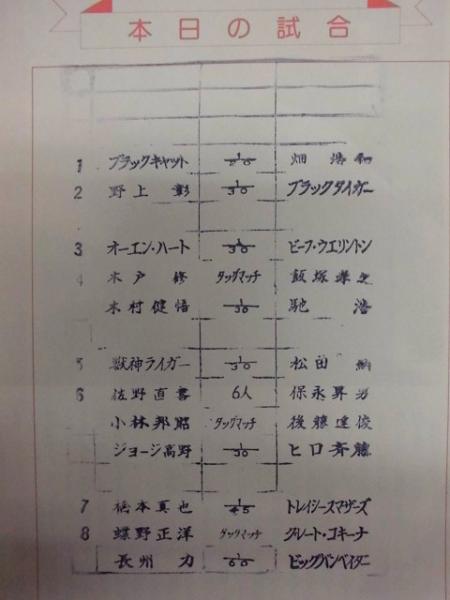 本日の試合
1 ブラックキャット 1/20 畑 浩和
2 野上 彰 1/30 ブラックタイガー
3 オーエン・ハート 1/30 ビーフ・ウエリントン
4 木戸 修 タッグマッチ 飯塚孝之
木村健悟 1/30 馳 浩
5 獣神ライガー 1/30 松田 納
6 佐野直喜 6人 保永昇男
小林邦昭 タッグマッチ 後藤達俊
ジョージ高野 1/30 ヒロ斉藤
7 橋本真也 1/45 トレイシースマザーズ
8 蝶野正洋 タッグマッチ グレート・コキーナ
長州 力 1/60 ビッグバンベイダー